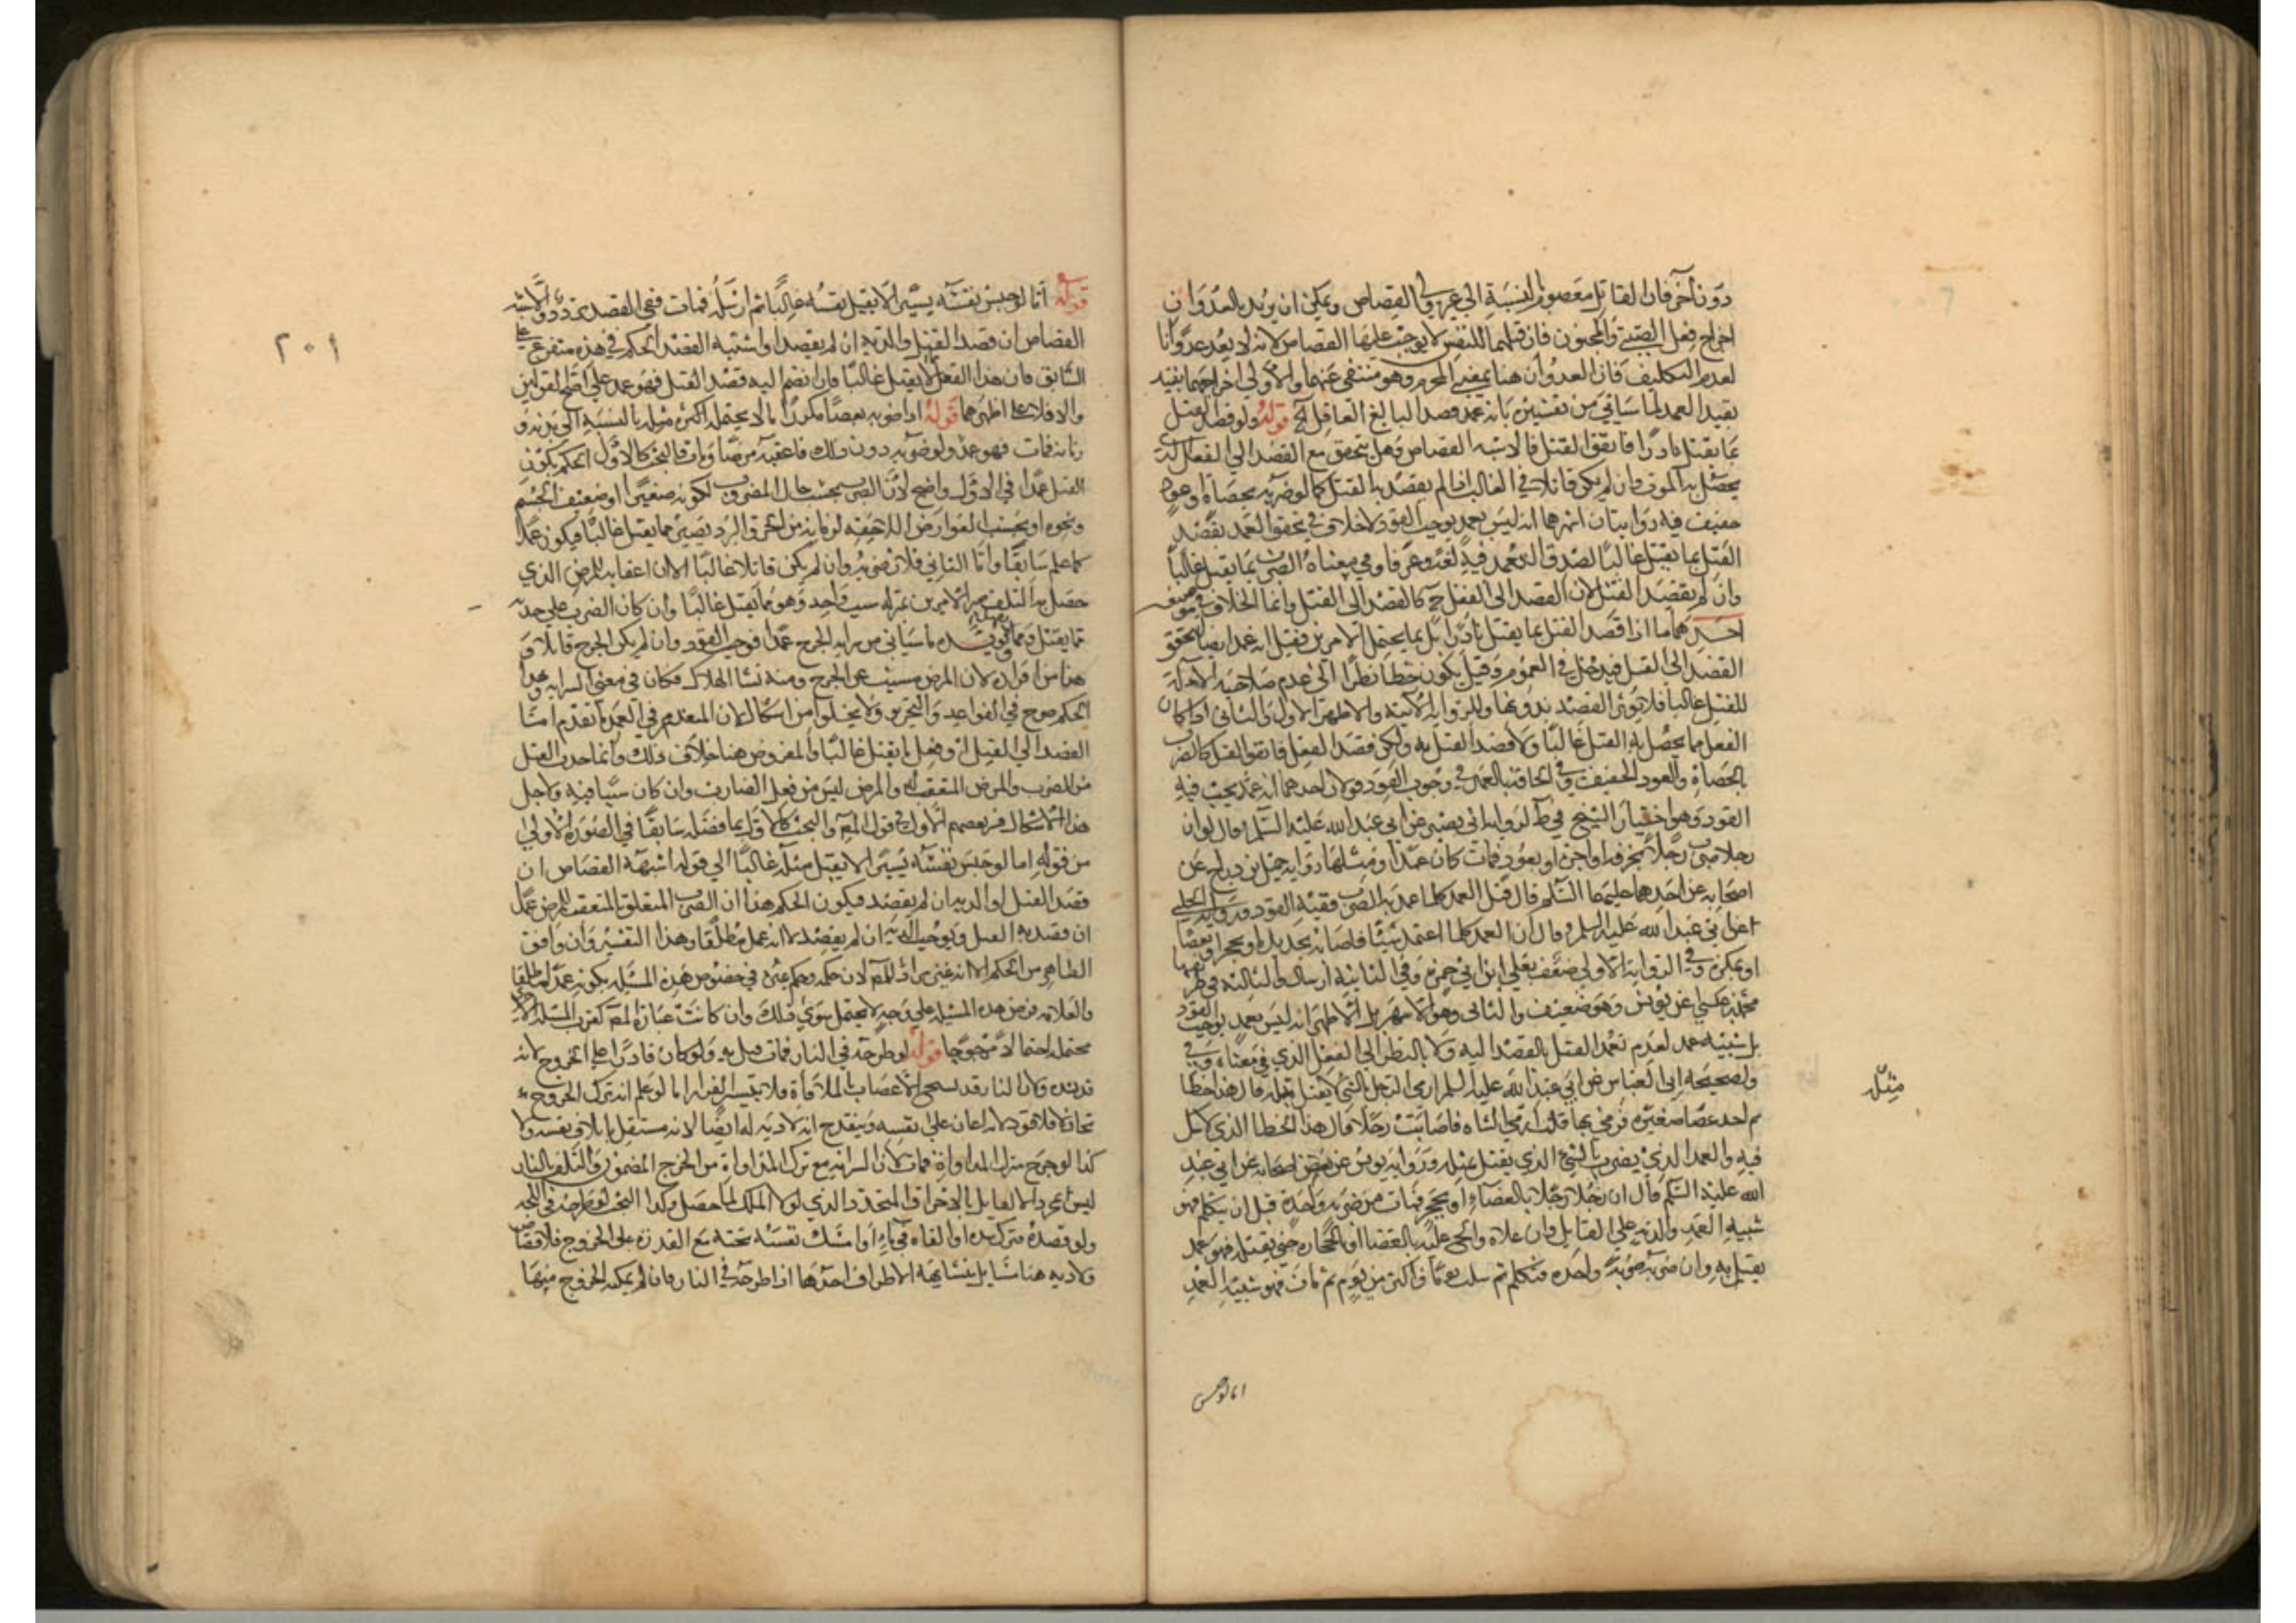 دون آخر فان القاتل معصوم بالنسبة الى غير ولي القصاص ويمكن ان يريد بالعدوان
اخراج فعل الصبي والمجنون فان قتلهما للنفس لا يوجب عليهما القصاص لانه لا يعد عدوانا
لعدم التكليف فان العدوان هنا بمعنى المحرم وهو منتفي عنهما والاولى اخراجهما بقيد
العمد لما سياتي من تفسيره بانه عمد قصد البالغ العاقل الخ قوله ولو قصد القتل
بما يقتل نادرا فاتفق القتل فالاشبه القصاص وهل يتحقق مع القصد الى الفعل الذي
يحصل به الموت وان لم يكن قاتلا في الغالب اذا لم يقصد به القتل كما لو ضربه بحصاة او عود
خفيف فيه روايتان اشهرهما انه ليس بعمد يوجب القود لا خلاف في تحقق العمد بقصد
القتل بما يقتل غالبا لصدق العمد فيه لغة وعرفا وفي معناه الضرب بما يقتل غالبا
وان لم يقصد القتل لان القصد الى الفعل ح كالقصد الى القتل وانما الخلاف في موضعين
احدهما ما اذا قصد القتل بما يقتل نادرا بل بما يحتمل الامرين فقيل انه عمد ايضا لتحقق
القصد الى القتل فيدخل في العموم وقيل يكون خطا نظرا الى عدم صلاحية الالة
للقتل غالبا فلا يؤثر القصد بدونها وللرواية الاتية والاظهر الاول والثاني اذا كان
الفعل مما يحصل به القتل غالبا ولا قصد القتل به ولكن قصد الفعل فاتفق القتل كالضرب
بالحصاة والعود الخفيف وفي الحاقه بالعمد في وجوب القود قولان احدهما انه عمد يجب فيه
القود وهو اختيار الشيخ في ط لرواية ابي بصير عن ابي عبد الله عليه السلم قال لو ان
رجلا ضرب رجلا بخزفة او اجرة او بعود فمات كان عمدا ومثلها رواية جميل بن دراج عن
اصحابه عن احدهما عليهما السلم قال قتل العمد كلما عمد به الضرب ففيه القود ورواية الحلبي
عن ابي عبد الله عليه السلم قال ان العمد كلما اعتمد شيئا فاصابه بحديدة او بحجر او بعصا
او بمكزة وفي الرواية الاولى ضعف بعلي ابن ابي حمزة وفي الثانية ارسال والثالثة في طريقها
محمد بن عيسى عن يونس وهو ضعيف والثاني وهو الاشهر بل الاظهر انه ليس بعمد يوجب القود
بل شبيه عمد لعدم تعمد القتل بالقصد اليه ولا بالنظر الى الفعل الذي في معناه وفي
ولصحيحة ابي العباس عن ابي عبد الله عليه السلم ارمي الرجل بالشي لا يقتل مثله قال هذا خطا
ثم اخذ حصاة صغيرة فرمى بها قلت ارمي الشاة فاصابت رجلا قال هذا الخطا الذي لا شك
فيه والعمد الذي يضرب بالشي الذي يقتل بمثله ورواية يونس عن بعض اصحابه عن ابي عبد
الله عليه السلم قال ان رجلا رجلا بالعصا او بحجر فمات من ضربة واحدة قبل ان يتكلم فهو
شبيه العمد والدية على القاتل وان علاه والح عليه بالعصا او الحجارة حتى يقتله فهو عمد
يقتل به وان ضربه ضربة واحدة فتكلم ثم مكث يوما او اكثر من يوم ثم مات فهو شبيه العمد
مثله
اما لو حبس
٢٠١
قوله اما لو حبس نفسه يسيرا لا يقتل نفسه غالبا ثم ارسله فمات ففي القصد تردد والاشبه
القصاص ان قصد القتل والدية ان لم يقصد او اشتبه القصد الحكم في هذه متفرع على
السابق فان هذا الفعل لا يقتل غالبا فان انضم اليه قصد القتل فهو عمد على اصح القولين
والا فلا على اظهرهما قوله اذا ضربه بعصا مكررا ما لا يحتمله اكثر مثله بالنسبة الى بدنه و
زمانه فمات فهو عمد ولو ضربه دون ذلك فاعقبه مرضا ومات فالبحث كالاول الحكم بكون
القتل عمدا في الاول واضح لان الضرب بحسب حال المضروب لكونه صغيرا او ضعيف الجسم
ونحوه او بحسب العوارض اللاحقة لزمانه من الحر والبرد يصير مما يقتل غالبا فيكون عمدا
كما علم سابقا واما الثاني فلان ضربه وان لم يكن قاتلا غالبا الا ان اعقابه للمرض الذي
حصل به التلف صير الامرين بمنزلة سبب واحد وهو مما يقتل غالبا وان كان الضرب على حدته
مما يقتل ويؤيده ما سياتي من سراية الجرح عمدا توجب القود وان لم يكن الجرح قاتلا و
هذا من افراده لان المرض مسبب عن الجرح ومنه نشا الهلاك فكان في معنى السراية وهذا
الحكم صرح في القواعد والتحرير ولا يخلو من اشكال لان المعتبر في العمد كما تقدم اما
القصد الى القتل او فعل ما يقتل غالبا والمفروض هنا خلاف ذلك وانما حدث القتل
من الضرب والمرض المتعقب له والمرض ليس من فعل الضارب وان كان سببا فيه ولاجل
هذا الاشكال فسر بعضهم الاول في قول المص والبحث كالاول بما فصله سابقا في الصورة الاولى
من قوله اما لو حبس نفسه يسيرا لا يقتل مثله غالبا الى قوله اشبهه القصاص ان
قصد القتل او الدية ان لم يقصد فيكون الحكم هذا ان الضرب المتعقب للمرض عمدا
ان قصد به القتل ويوجب الدية ان لم يقصد لا انه عمل مطلقا وهذا التفسير وان وافق
الظاهر من الحكم الا انه غير مراد للمص لان حكمه وحكم غيره في خصوص هذه المسئلة بكونه عمدا مطلقا
والعلامة فرض هذه المسئلة على وجه لا يحتمل سوى ذلك وان كانت عبارة المص
محتملة احتمالا مرجوحا قوله لو طرحه في النار فمات قتل به ولو كان قادرا على الخروج لانه
قد يشده ولان النار قد تشنج الاعصاب بالملاقاة فلا يتيسر الفرار اما لو علم انه ترك الخروج
تخاذلا فلا قود لانه اعان على نفسه وينقدح انه لا دية له ايضا لانه مستقل باتلاف نفسه ولا
كذا لو جرح فترك المداواة فمات لان السراية مع ترك المداواة من الجرح المضمون والتلف بالنار
ليس بمجرد الالقاء بل بالاحراق المتجدد الذي لولا المكث لما حصل وكذا البحث لو طرحه في اللجة
ولو فصده فترك شده او القاه في ماء او امسك نفسه تحته مع القدرة على الخروج فلا قصاص
ولا دية هنا مسايل متشابهة الاطراف احدها اذا طرحه في النار فان لم يمكنه الخروج منها